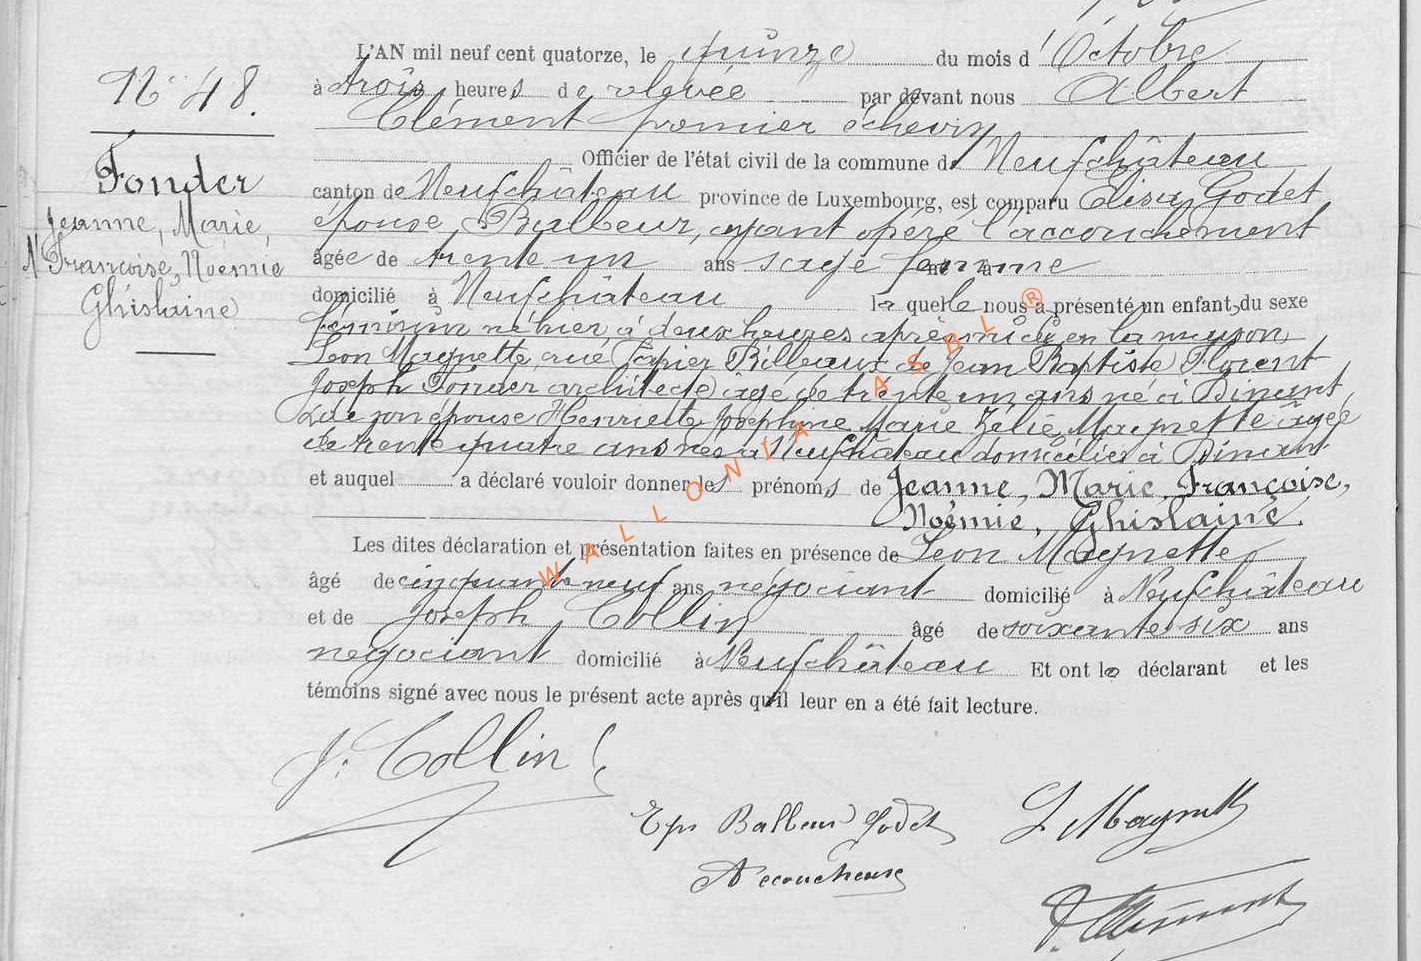 N° 48.
Fonder
Jeanne, Marie,
Françoise, Noémie
Ghislaine
L'AN mil neuf cent quatorze, le quinze du mois d'Octobre
à trois heures de relevée par devant nous Albert
Clément premier échevin
Officier de l'état civil de la commune de Neufchâteau
canton de Neufchâteau province de Luxembourg, est comparu Elisa Godet
épouse Balbeur, ayant opéré l'accouchement
âgée de trente un ans sage femme
domicilié à Neufchâteau laquelle nous a présenté un enfant du sexe
féminin né hier à deux heures après midi en la maison
Léon Magnette, rue Billeaux de Jean Baptiste Florent
Joseph Fonder architecte agé de trente un ans né à Dinant
& de son épouse Henriette Joséphine Marie Zélie Magnette agée
de trente quatre ans née à Neufchâteau domiciliés à Dinant
et auquel a déclaré vouloir donner les prénoms de Jeanne, Marie, Françoise,
Noémie, Ghislaine.
Les dites déclaration et présentation faites en présence de Léon Magnette
âgé de cinquante neuf ans négociant domicilié à Neufchâteau
et de Joseph Collin âgé de soixante six ans
négociant domicilié à Neufchâteau Et ont le déclarant et les
témoins signé avec nous le présent acte après qu'il leur en a été fait lecture.
J. Collin
Eps Balbeur Godet
L Magnette
Accoucheuse
Clément
WALLONIA ASBL ®